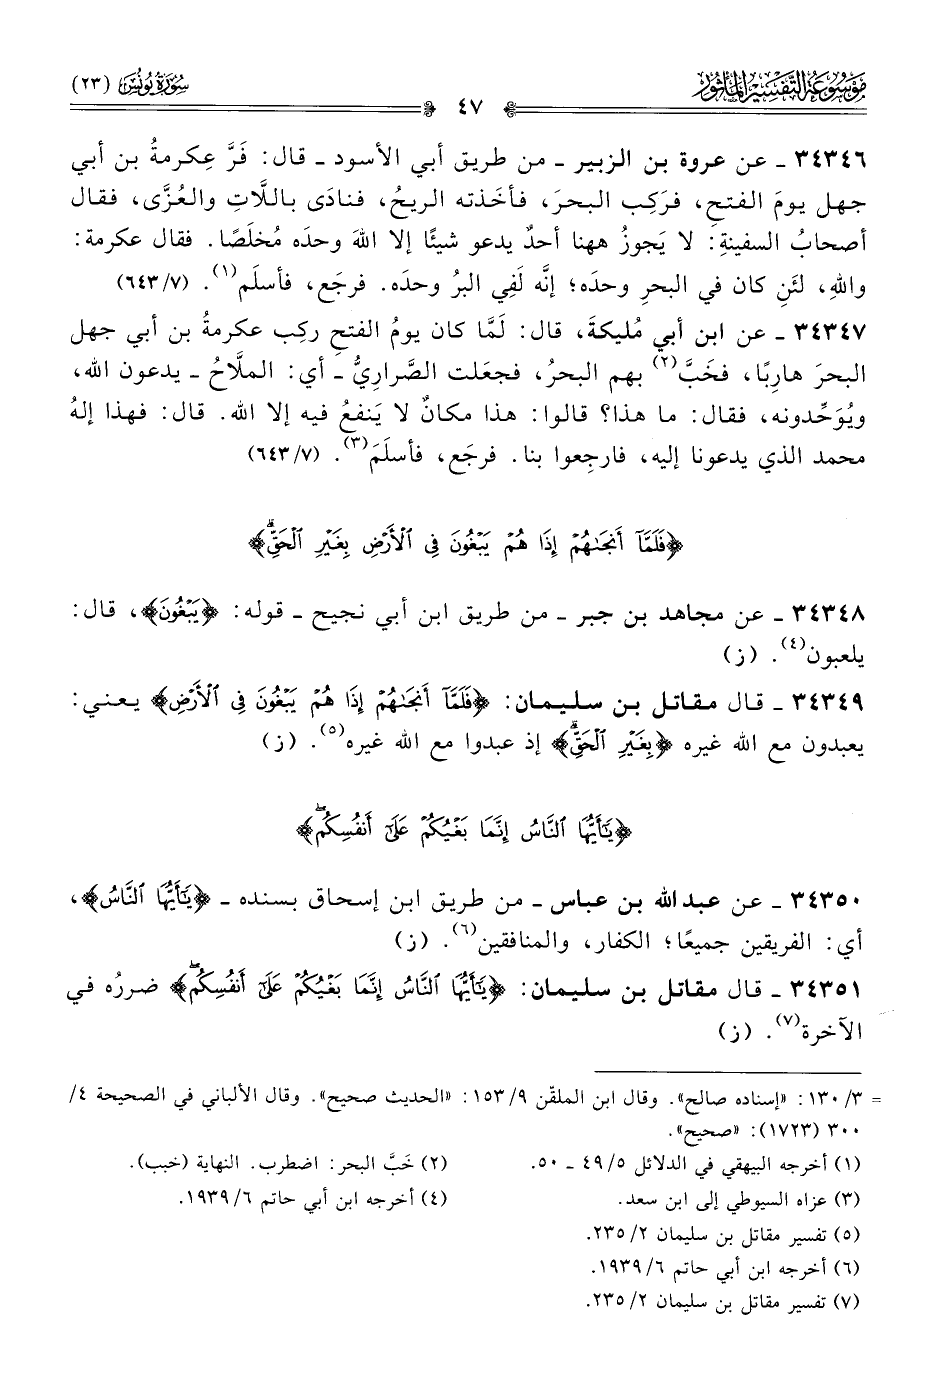 مَوْسُوعَة التَّفْسِير المَأْثُور
سُورَةُ يُونُسَ (٢٣)
٤٧
٣٤٣٤٦ ـ عن عروة بن الزبير ـ من طريق أبي الأسود ـ قال: فَرَّ عِكرمةُ بن أبي
جهل يومَ الفتحِ، فرَكِب البحرَ، فأخَذته الريحُ، فنادَى باللَّاتِ والعُزَّى، فقال
أصحابُ السفينةِ: لا يَجوزُ ههنا أحدٌ يدعو شيئًا إلا اللهَ وحدَه مُخلَصًا. فقال عكرمة:
واللهِ، لئَنِ كان في البحرِ وحدَه؛ إنَّه لَفِي البرُ وحدَه. فرجَع، فأسلَم(١). (٦٤٣/٧)
٣٤٣٤٧ ـ عن ابن أبي مُليكةَ، قال: لَمَّا كان يومُ الفتحِ ركِب عكرمةُ بن أبي جهل
البحرَ هارِبًا، فخَبَّ(٢) بهم البحرُ، فجعَلت الصَّرارِيُّ ـ أي: الملَّاحُ ـ يدعون الله،
ويُوَحِّدونه، فقال: ما هذا؟ قالوا: هذا مكانٌ لا يَنفعُ فيه إلا الله. قال: فهذا إلهُ
محمد الذي يدعونا إليه، فارجِعوا بنا. فرجَع، فأسلَمَ(٣). (٦٤٣/٧)
﴿فَلَمَّآ أَنجَىٰهُمْ إِذَا هُمْ يَبْغُونَ فِى ٱلْأَرْضِ بِغَيْرِ ٱلْحَقِّۗ﴾
٣٤٣٤٨ ـ عن مجاهد بن جبر ـ من طريق ابن أبي نجيح ـ قوله: ﴿يَبْغُونَ﴾، قال:
يلعبون(٤). (ز)
٣٤٣٤٩ ـ قال مقاتل بن سليمان: ﴿فَلَمَّآ أَنجَىٰهُمْ إِذَا هُمْ يَبْغُونَ فِى ٱلْأَرْضِ﴾ يعني:
يعبدون مع الله غيره ﴿بِغَيْرِ ٱلْحَقِّۗ﴾ إذ عبدوا مع الله غيره(٥). (ز)
﴿يَٰٓأَيُّهَا ٱلنَّاسُ إِنَّمَا بَغْيُكُمْ عَلَىٰٓ أَنفُسِكُمۖ﴾
٣٤٣٥٠ ـ عن عبد الله بن عباس ـ من طريق ابن إسحاق بسنده ـ ﴿يَٰٓأَيُّهَا ٱلنَّاسُ﴾،
أي: الفريقين جميعًا؛ الكفار، والمنافقين(٦). (ز)
٣٤٣٥١ ـ قال مقاتل بن سليمان: ﴿يَٰٓأَيُّهَا ٱلنَّاسُ إِنَّمَا بَغْيُكُمْ عَلَىٰٓ أَنفُسِكُمۖ﴾ ضررُه في
الآخرة(٧). (ز)
= ٣/ ١٣٠: «إسناده صالح». وقال ابن الملقّن ٩/ ١٥٣: «الحديث صحيح». وقال الألباني في الصحيحة ٤/
٣٠٠ (١٧٢٣): «صحيح».
(١) أخرجه البيهقي في الدلائل ٤٩/٥ ـ ٥٠.
(٢) خَبَّ البحر: اضطرب. النهاية (خبب).
(٣) عزاه السيوطي إلى ابن سعد.
(٤) أخرجه ابن أبي حاتم ٦/ ١٩٣٩.
(٥) تفسير مقاتل بن سليمان ٢/ ٢٣٥.
(٦) أخرجه ابن أبي حاتم ٦/ ١٩٣٩.
(٧) تفسير مقاتل بن سليمان ٢/ ٢٣٥.